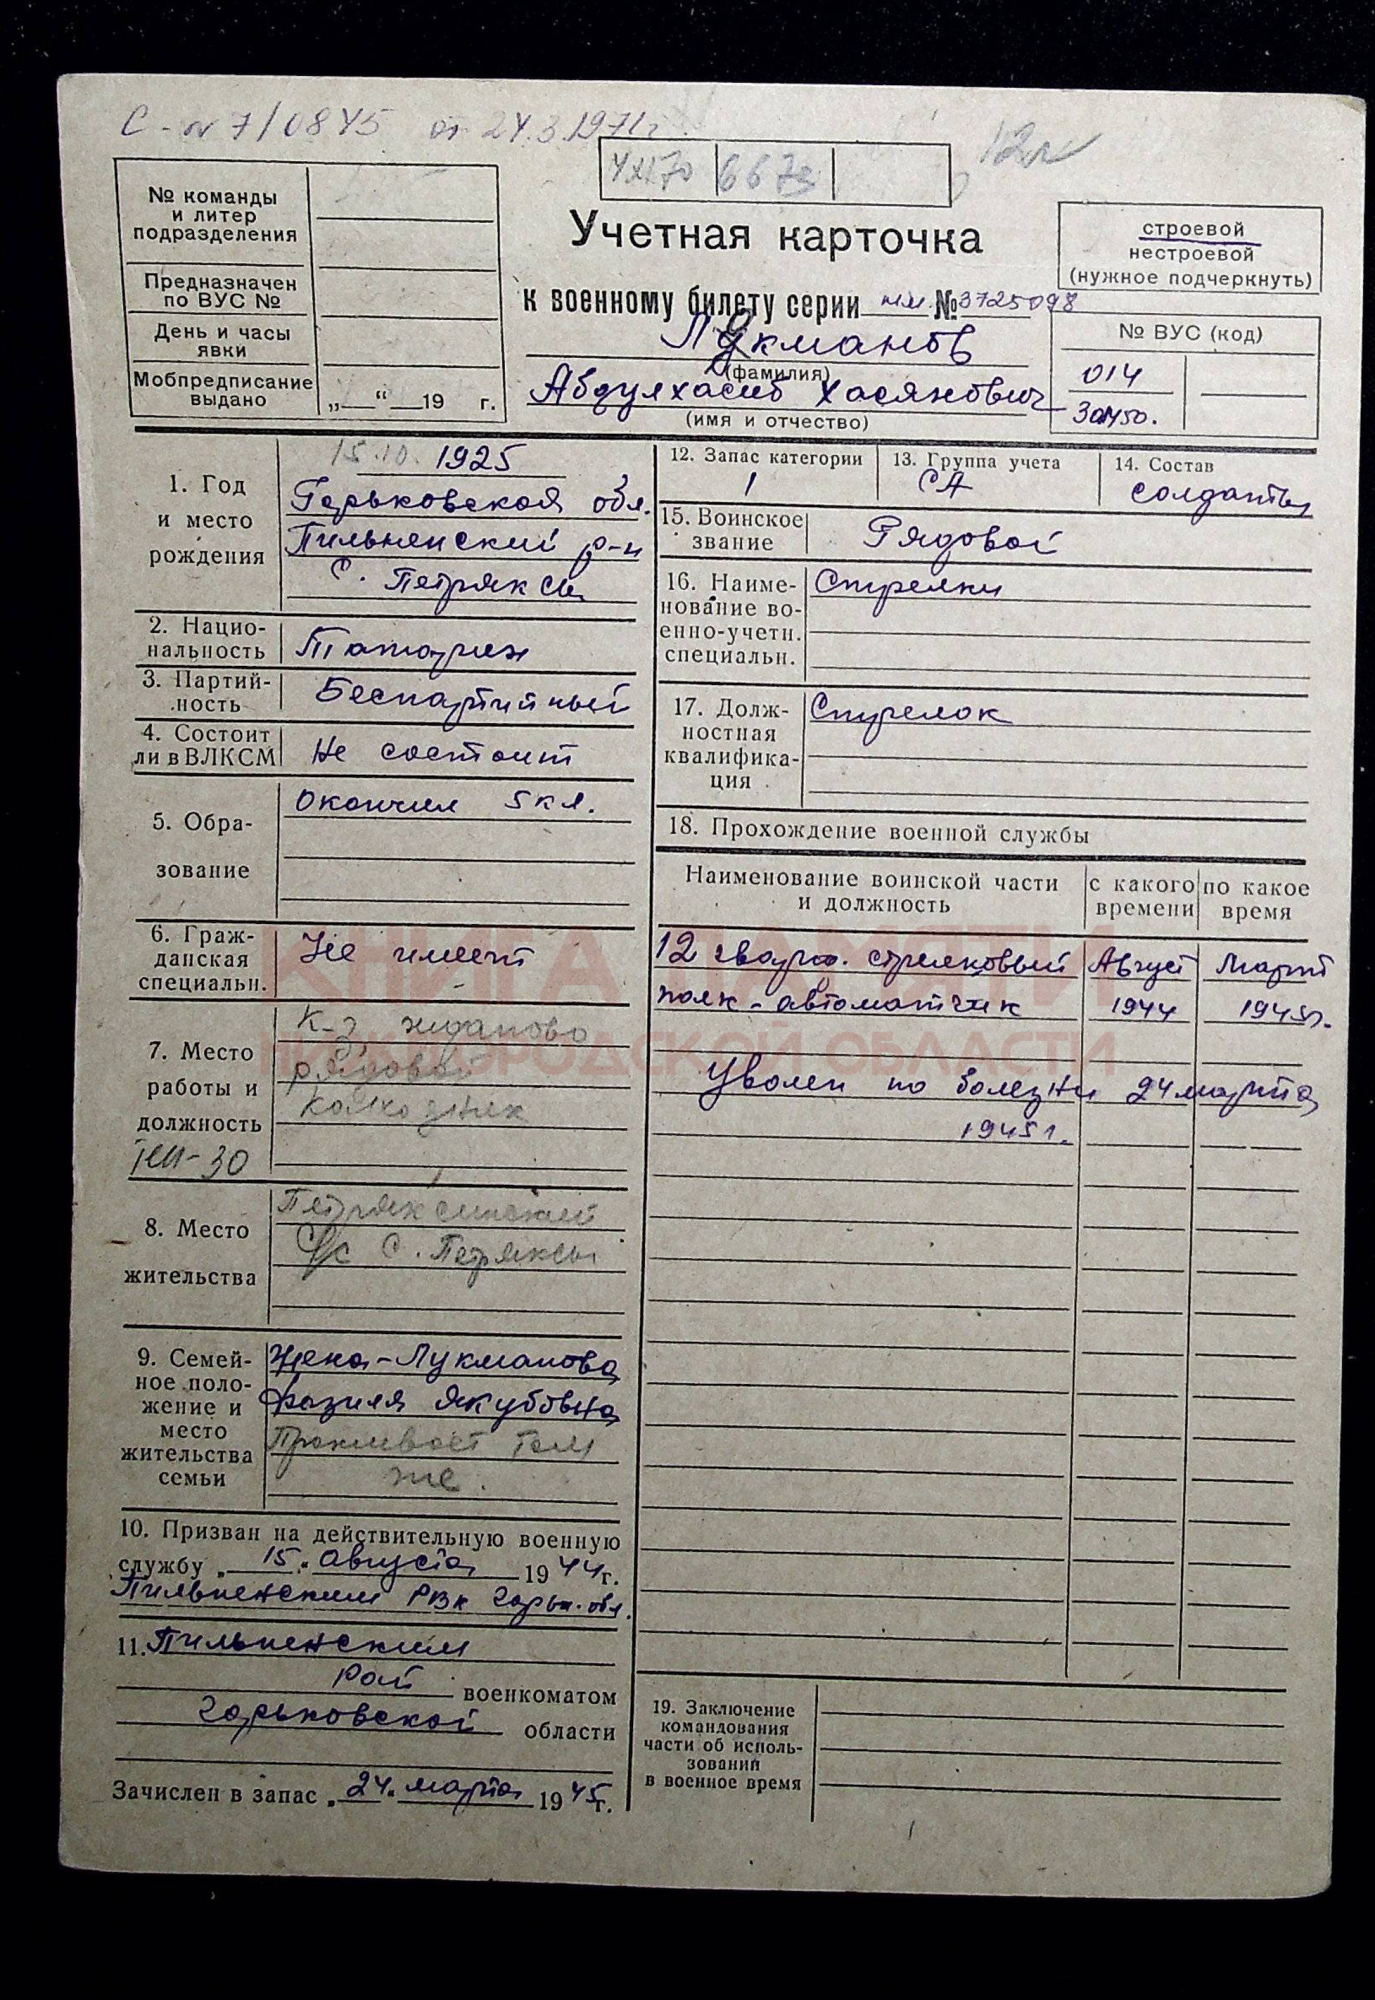 С - № 7/0845 от 24.3.1971г
12л
667з
№ команды
и литер
подразделения
Предназначен
по ВУС №
День и часы
явки
Мобпредписание
выдано
„ “ 19 г.
Учетная карточка
к военному билету серии НИ № 3725098
Лукманов
(фамилия)
Абдулхасиб Хасянович
(имя и отчество)
строевой
нестроевой
(нужное подчеркнуть)
№ ВУС (код)
014
1. Год
и место
рождения
15.10. 1925
Горьковской обл.
Пильненский р-н
с. Петряксы
2. Нацио-
нальность
Татарин
3. Партий-
ность
Беспартийный
4. Состоит
ли в ВЛКСМ
Не состоит
5. Обра-
зование
Окончил 5 кл.
6. Граж-
данская
специальн.
Не имеет
7. Место
работы и
должность
К-з Жданова
рядовой
колхозник
8. Место
жительства
Петряксинский
с/с с. Петряксы
9. Семей-
ное поло-
жение и
место
жительства
семьи
Жена - Лукманова
Фазиля Якубовна
Проживает там
же.
10. Призван на действительную военную
службу „15“ августа 1944г.
Пильненским РВК Горьк. обл.
11. Пильненским
Рай военкоматом
Горьковской области
Зачислен в запас „24“ марта 1945г.
12. Запас категории
1
13. Группа учета
СА
14. Состав
солдаты
15. Воинское
звание
Рядовой
16. Наиме-
нование во-
енно-учетн.
специальн.
Стрелки
17. Долж-
ностная
квалифика-
ция
Стрелок
18. Прохождение военной службы
Наименование воинской части
и должность
с какого
времени
по какое
время
12 гвард. стрелковый Август Март
полк - автоматчик 1944 1945г.
Уволен по болезни 24 марта
1945г.
19. Заключение
командования
части об исполь-
зовании
в военное время
КНИГА ПАМЯТИ
НИЖЕГОРОДСКОЙ ОБЛАСТИ